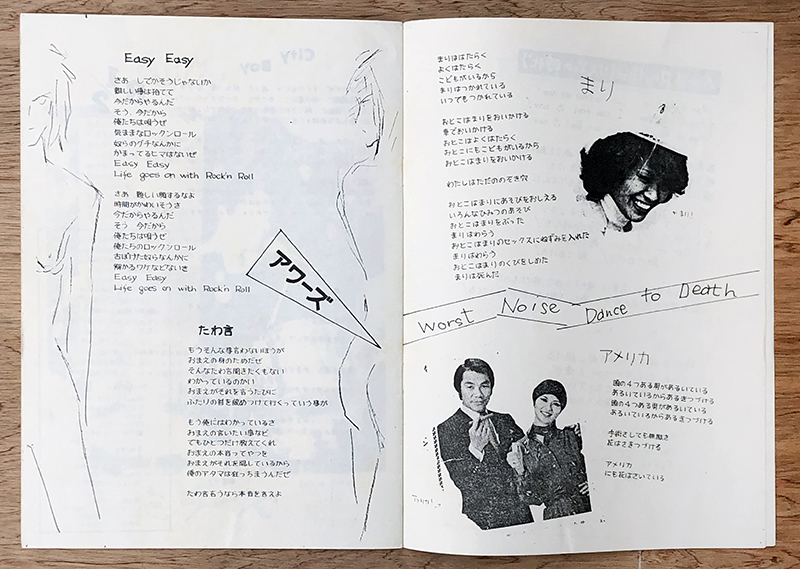 Easy Easy
さあ　しでかそうじゃないか
難しい事は捨てて
今だからやるんだ
そう　今だから
俺たちは唄うぜ
気ままなロックンロール
奴らのグチなんかに
かまってるヒマはないぜ
Easy Easy
Life goes on with Rock'n Roll
さあ　難しい顔するなよ
時間がかわいそうさ
今だからやるんだ
そう　今だから
俺たちは唄うぜ
俺たちのロックンロール
古ぼけた奴らなんかに
解かるワケなどないさ
Easy Easy
Life goes on with Rock'n Roll
アワーズ
たわ言
もうそんな事言わないほうが
おまえの身のためだぜ
そんなたわ言聞きたくもない
わかっているのかい
おまえがそれを言うたびに
ふたりの首を締めつけて行くっていう事が
もう俺にはわかっているさ
おまえの言いたい事など
でもひとつだけ教えてくれ
おまえの本音ってやつを
おまえがそれを隠しているから
俺のアタマは狂っちまうんだぜ
たわ言言うなら本音を言えよ
City Boy
まり
まりははたらく
よくはたらく
こどもがいるから
まりはつかれている
いつでもつかれている
おとこはまりをおいかける
車でおいかける
おとこはよくはたらく
おとこにもこどもがいるから
おとこはまりをおいかける
わたしはただののぞき穴
おとこはまりにあそびをおしえる
いろんなひみつのあそび
おとこはまりをぶった
まりはわらう
おとこはまりのセックスにねずみを入れた
まりはわらう
おとこはまりのくびをしめた
まりは死んだ
Worst Noise Dance to Death
アメリカ
頭の4つある男があるいている
あるいているからあるきつづける
頭の4つある男があるいている
あるいているからあるきつづける
手術をしても無駄さ
花はさきつづける
アメリカ
にも花はさいている